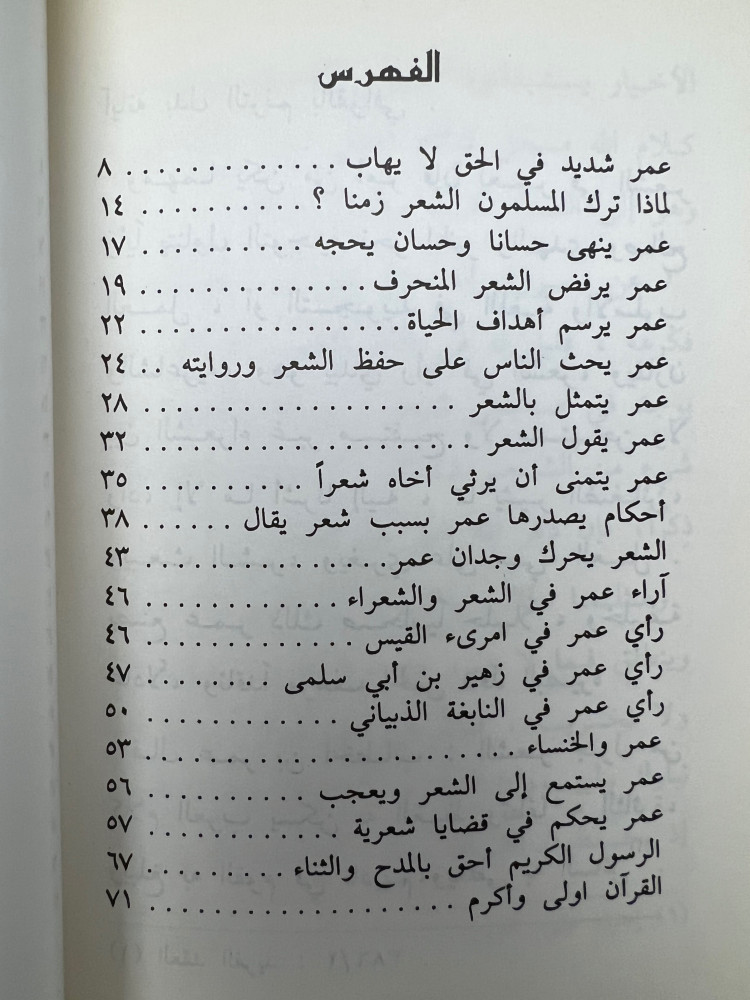 الفهرس
عمر شديد في الحق لا يهاب . . . . . . . . . . . . . ٨
لماذا ترك المسلمون الشعر زمنا ؟ . . . . . . . . . . ١٤
عمر ينهى حسانا وحسان يحجه . . . . . . . . . . ١٧
عمر يرفض الشعر المنحرف . . . . . . . . . . . . . . ١٩
عمر يرسم أهداف الحياة . . . . . . . . . . . . . . . . ٢٢
عمر يحث الناس على حفظ الشعر وروايته . . ٢٤
عمر يتمثل بالشعر . . . . . . . . . . . . . . . . . . . ٢٨
عمر يقول الشعر . . . . . . . . . . . . . . . . . . . . . ٣٢
عمر يتمنى أن يرثي أخاه شعراً . . . . . . . . . . ٣٥
أحكام يصدرها عمر بسبب شعر يقال . . . . . . ٣٨
الشعر يحرك وجدان عمر . . . . . . . . . . . . . . . ٤٣
آراء عمر في الشعر والشعراء . . . . . . . . . . . . ٤٦
رأي عمر في امرىء القيس . . . . . . . . . . . . . ٤٦
رأي عمر في زهير بن أبي سلمى . . . . . . . . ٤٧
رأي عمر في النابغة الذبياني . . . . . . . . . . . . ٥٠
عمر والخنساء . . . . . . . . . . . . . . . . . . . . . . . ٥٣
عمر يستمع إلى الشعر ويعجب . . . . . . . . . . ٥٦
عمر يحكم في قضايا شعرية . . . . . . . . . . . . ٥٧
الرسول الكريم أحق بالمدح والثناء . . . . . . . . . ٦٧
القرآن اولى وأكرم . . . . . . . . . . . . . . . . . . . ٧١